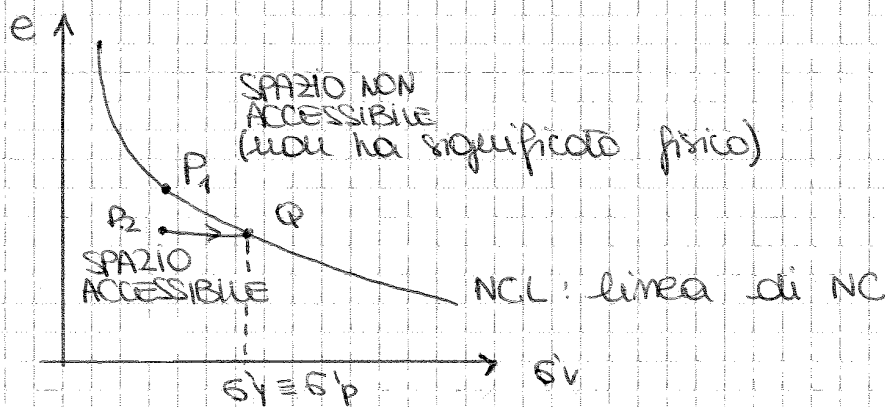 e
SPAZIO NON
ACCESSIBILE
(non ha significato fisico)
P1
P2
Q
SPAZIO
ACCESSIBILE
NCL: linea di NC
σ'v ≡ σ'p
σ'v